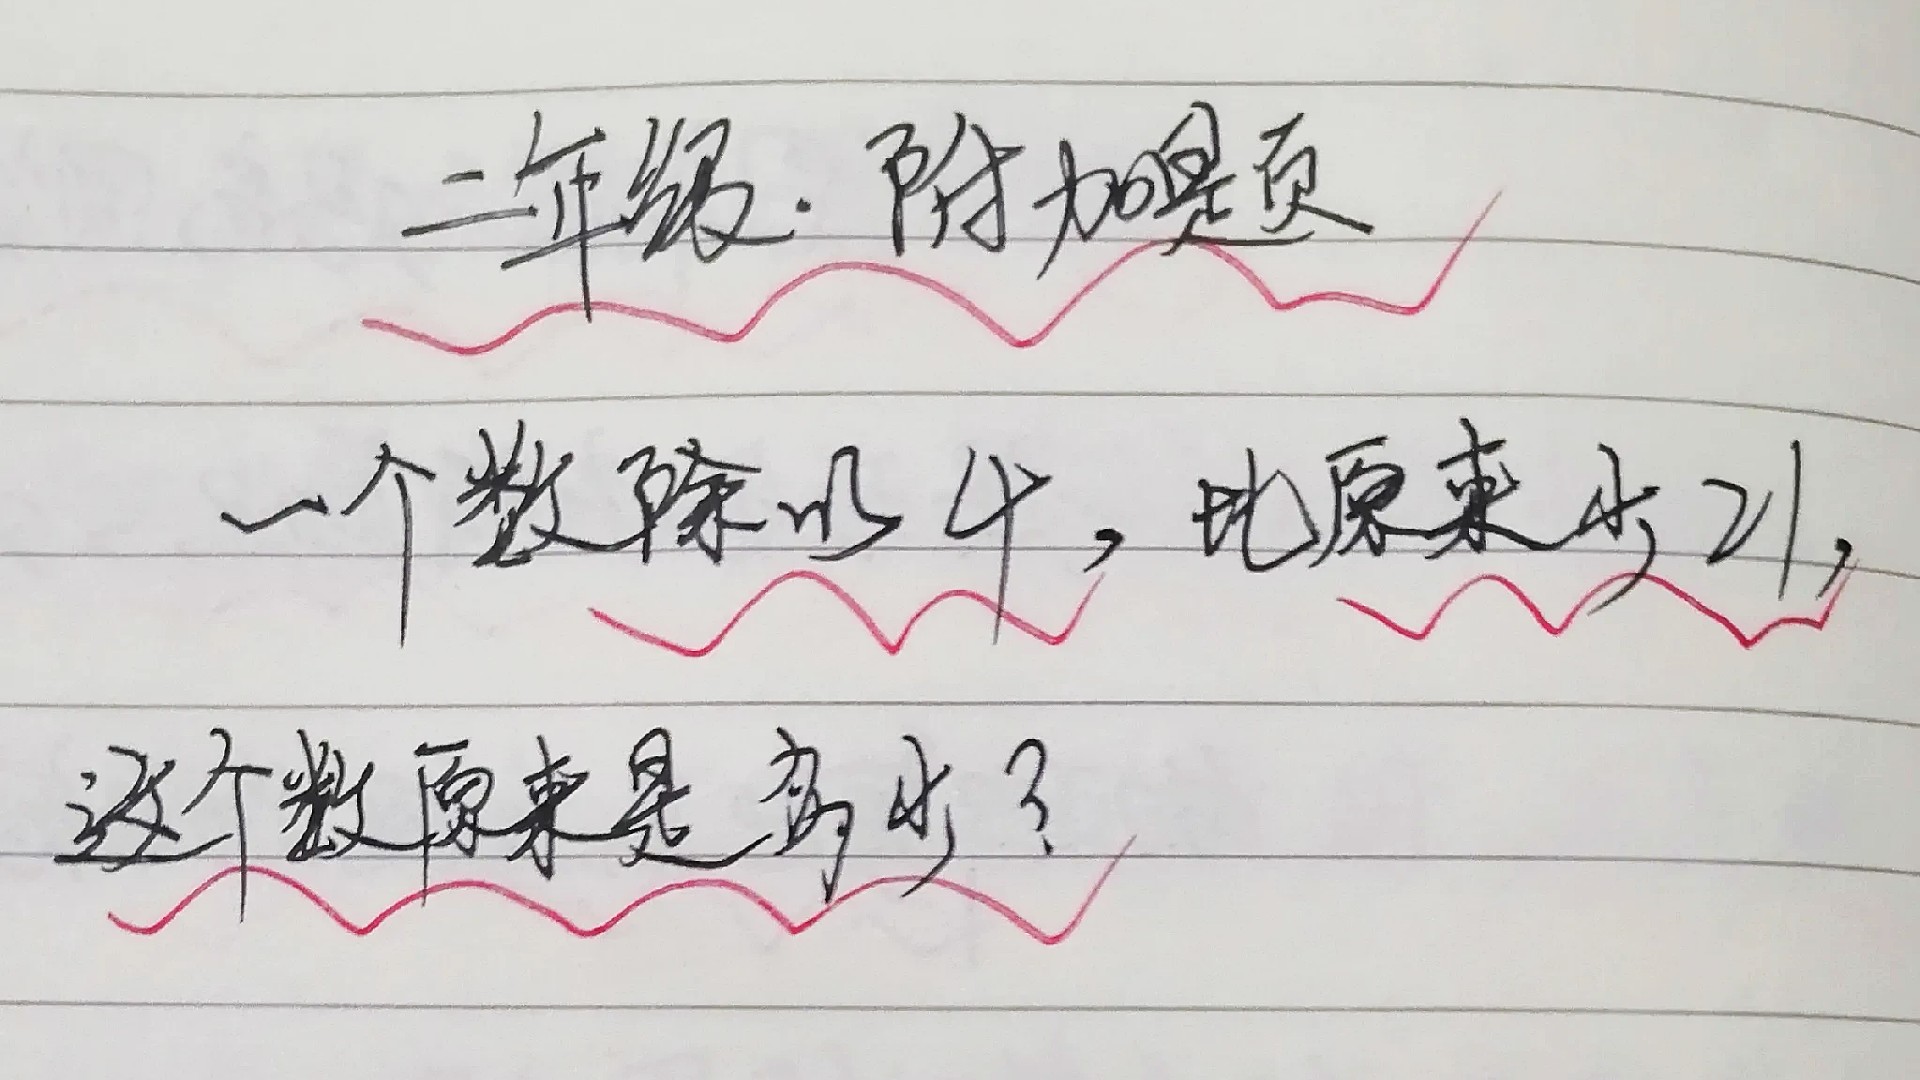 二年级.附加题
一个数除以4,比原来少21,
这个数原来是多少?